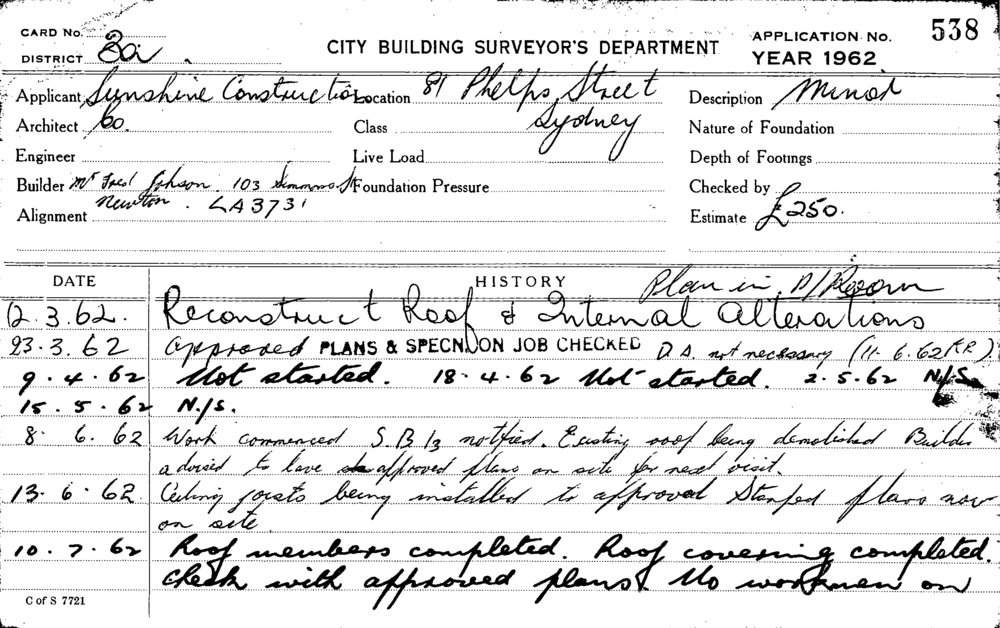 CARD No.
DISTRICT 2a.
CITY BUILDING SURVEYOR'S DEPARTMENT
APPLICATION No. 538
YEAR 1962
Applicant Sunshine Construction Co.
Location 81 Phelps Street Sydney
Description Minor
Architect
Class
Nature of Foundation
Engineer
Live Load
Depth of Footings
Builder Mr Fred Johson. 103 Simmons St Newton. LA3731
Foundation Pressure
Checked by
Alignment
Estimate £250.
DATE HISTORY Plan in. P/Room
12.3.62. Reconstruct Roof & Internal Alterations
23.3.62 Approved PLANS & SPECN. ON JOB CHECKED D.A. not necessary (11.6.62 )
9.4.62 Not started. 18.4.62 Not started. 2.5.62 N/S.
15.5.62 N/S.
8.6.62 Work commenced S.B 13 notified. Existing roof being demolished Builder
advised to have approved plans on site for next visit.
13.6.62 Ceiling joists being installed to approval Stamped plans now
on site
10.7.62 Roof members completed. Roof covering completed.
Check with approved plans. No workmen on
C of S 7721